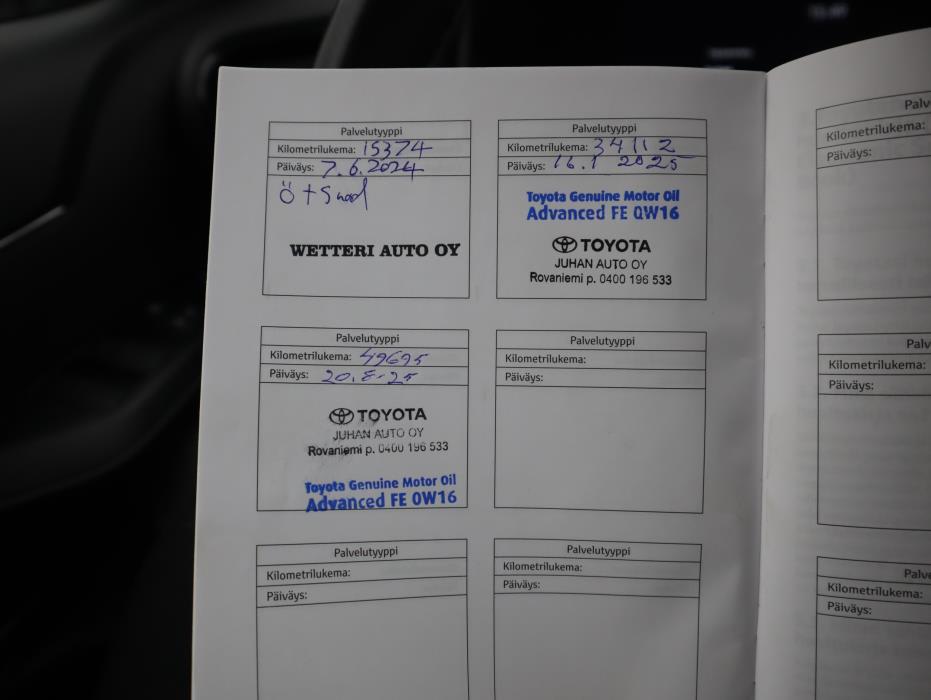 Palvelutyyppi
Kilometrilukema: 15374
Päiväys: 7.6.2024
Ö + Suod
WETTERI AUTO OY
Palvelutyyppi
Kilometrilukema: 34112
Päiväys: 16.1 2025
Toyota Genuine Motor Oil
Advanced FE 0W16
TOYOTA
JUHAN AUTO OY
Rovaniemi p. 0400 196 533
Palvelutyyppi
Kilometrilukema: 49695
Päiväys: 20.8-25
TOYOTA
JUHAN AUTO OY
Rovaniemi p. 0400 196 533
Toyota Genuine Motor Oil
Advanced FE 0W16
Palvelutyyppi
Kilometrilukema:
Päiväys:
Palvelutyyppi
Kilometrilukema:
Päiväys:
Palvelutyyppi
Kilometrilukema:
Päiväys:
Palv
Kilometrilukema:
Päiväys:
Palv
Kilometrilukema:
Päiväys:
Palve
Kilometrilukema:
Päiväys: